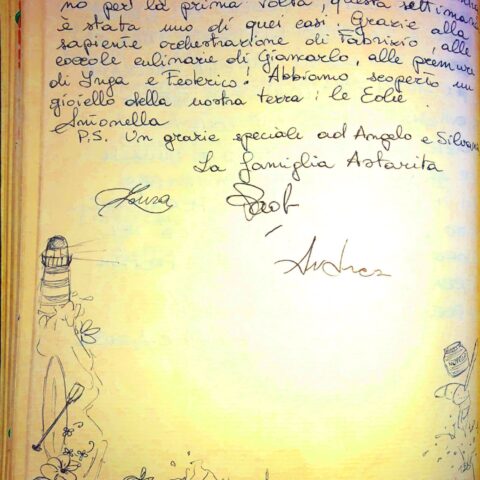 no per la prima volta, questa settimana
è stata uno di quei casi. Grazie alla
sapiente orchestrazione di Fabrizio, alle
coccole culinarie di Giancarlo, alle premure
di Inga e Federico! Abbiamo scoperto un
gioiello della nostra terra: le Eolie.
Antonella
P.S. Un grazie speciale ad Angelo e Silvana
La famiglia Astarita
Andrea